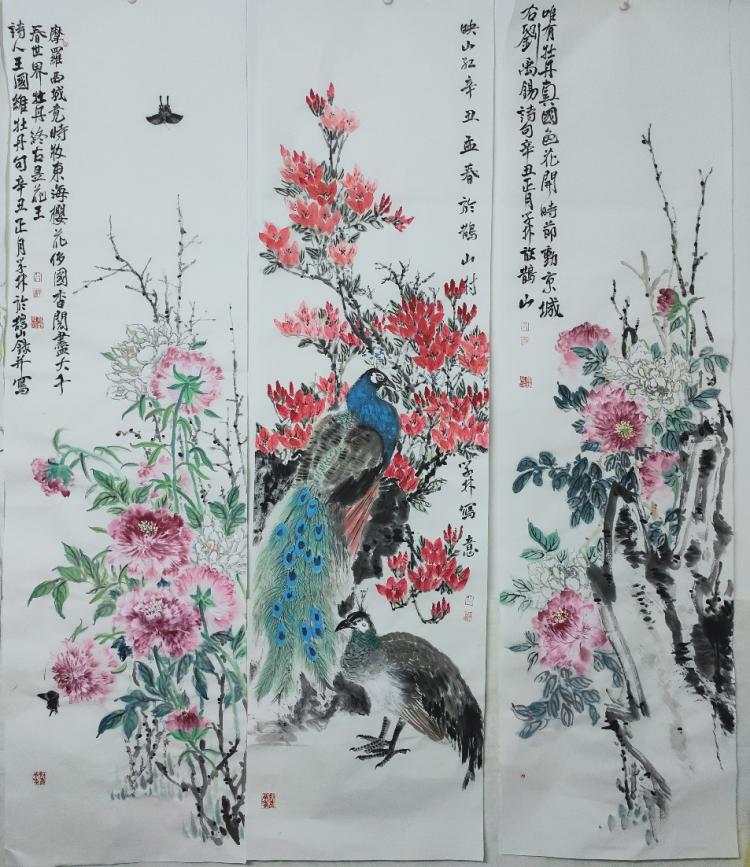 唯有牡丹真國色花開時節動京城
右劉禹錫詩句辛丑正月学林於鵲山
映山红辛丑孟春於鵲山村
学林寫意
摩羅西域竟時妝東海櫻花侈國香閱盡大千
春世界牡丹終古是花王
詩人王國維牡丹句辛丑正月学林於鵲山録并寫